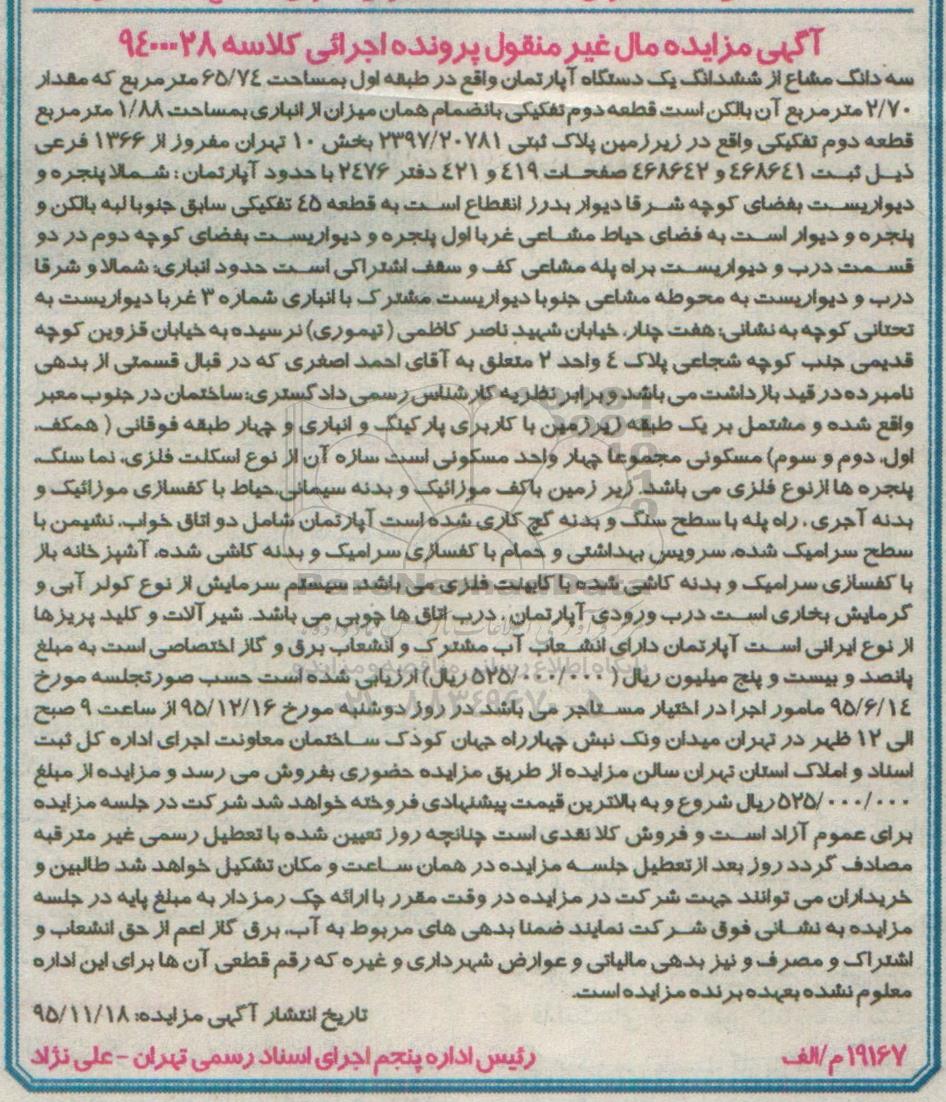 آگهی مزایده مال غیر منقول پرونده اجرائی کلاسه ۹۴۰۰۰۰۲۸
سه دانگ مشاع از ششدانگ یک دستگاه آپارتمان واقع در طبقه اول بمساحت ۶۵/۷۴ متر مربع که مقدار
۲/۷۰ متر مربع آن بالکن است قطعه دوم تفکیکی بانضمام همان میزان از انباری بمساحت ۱/۸۸ متر مربع
قطعه دوم تفکیکی واقع در زیرزمین پلاک ثبتی ۲۳۹۷/۲۰۷۸۱ بخش ۱۰ تهران مفروز از ۱۳۶۶ فرعی
ذیل ثبت ۴۶۸۶۴۱ و ۴۶۸۶۴۲ صفحات ۴۱۹ و ۴۲۱ دفتر ۲۴۷۶ با حدود آپارتمان : شمالا پنجره و
دیواریست بفضای کوچه شرقا دیوار بدرز انقطاع است به قطعه ۴۵ تفکیکی سابق جنوبا لبه بالکن و
پنجره و دیوار است به فضای حیاط مشاعی غربا اول پنجره و دیواریست بفضای کوچه دوم در دو
قسمت درب و دیواریست براه پله مشاعی کف و سقف اشتراکی است حدود انباری: شمالا و شرقا
درب و دیواریست به محوطه مشاعی جنوبا دیواریست مشترک با انباری شماره ۳ غربا دیواریست به
تحتانی کوچه به نشانی: هفت چنار، خیابان شهید ناصر کاظمی ( تیموری) نرسیده به خیابان قزوین کوچه
قدیمی جنب کوچه شجاعی پلاک ۴ واحد ۲ متعلق به آقای احمد اصغری که در قبال قسمتی از بدهی
نامبرده در قید بازداشت می باشد و برابر نظریه کارشناس رسمی دادگستری: ساختمان در جنوب معبر
واقع شده و مشتمل بر یک طبقه زیرزمین با کاربری پارکینگ و انباری و چهار طبقه فوقانی ( همکف،
اول، دوم و سوم) مسکونی مجموعا چهار واحد مسکونی است سازه آن از نوع اسکلت فلزی، نما سنگ،
پنجره ها از نوع فلزی می باشد. زیر زمین با کف موزائیک و بدنه سیمانی، حیاط با کفسازی موزائیک و
بدنه آجری ، راه پله با سطح سنگ و بدنه گچ کاری شده است آپارتمان شامل دو اتاق خواب، نشیمن با
سطح سرامیک شده، سرویس بهداشتی و حمام با کفسازی سرامیک و بدنه کاشی شده، آشپزخانه باز
با کفسازی سرامیک و بدنه کاشی شده با کابینت فلزی می باشد. سیستم سرمایش از نوع کولر آبی و
گرمایش بخاری است درب ورودی آپارتمان، درب اتاق ها چوبی می باشد. شیرآلات و کلید پریزها
از نوع ایرانی است آپارتمان دارای انشعاب آب مشترک و انشعاب برق و گاز اختصاصی است به مبلغ
پانصد و بیست و پنج میلیون ریال ( ۵۲۵/۰۰۰/۰۰۰ ریال) ارزیابی شده است حسب صورتجلسه مورخ
۹۵/۶/۱۴ مامور اجرا در اختیار مستاجر می باشد در روز دوشنبه مورخ ۹۵/۱۲/۱۶ از ساعت ۹ صبح
الی ۱۲ ظهر در تهران میدان ونک نبش چهارراه جهان کودک ساختمان معاونت اجرای اداره کل ثبت
اسناد و املاک استان تهران سالن مزایده از طریق مزایده حضوری بفروش می رسد و مزایده از مبلغ
۵۲۵/۰۰۰/۰۰۰ ریال شروع و به بالاترین قیمت پیشنهادی فروخته خواهد شد شرکت در جلسه مزایده
برای عموم آزاد است و فروش کلا نقدی است چنانچه روز تعیین شده با تعطیل رسمی غیر مترقبه
مصادف گردد روز بعد از تعطیل جلسه مزایده در همان ساعت و مکان تشکیل خواهد شد طالبین و
خریداران می توانند جهت شرکت در مزایده در وقت مقرر با ارائه چک رمزدار به مبلغ پایه در جلسه
مزایده به نشانی فوق شرکت نمایند ضمنا بدهی های مربوط به آب، برق گاز اعم از حق انشعاب و
اشتراک و مصرف و نیز بدهی مالیاتی و عوارض شهرداری و غیره که رقم قطعی آن ها برای این اداره
معلوم نشده بعهده برنده مزایده است.
تاریخ انتشار آگهی مزایده: ۹۵/۱۱/۱۸
۱۹۱۶۷ م/الف
رئیس اداره پنجم اجرای اسناد رسمی تهران - علی نژاد